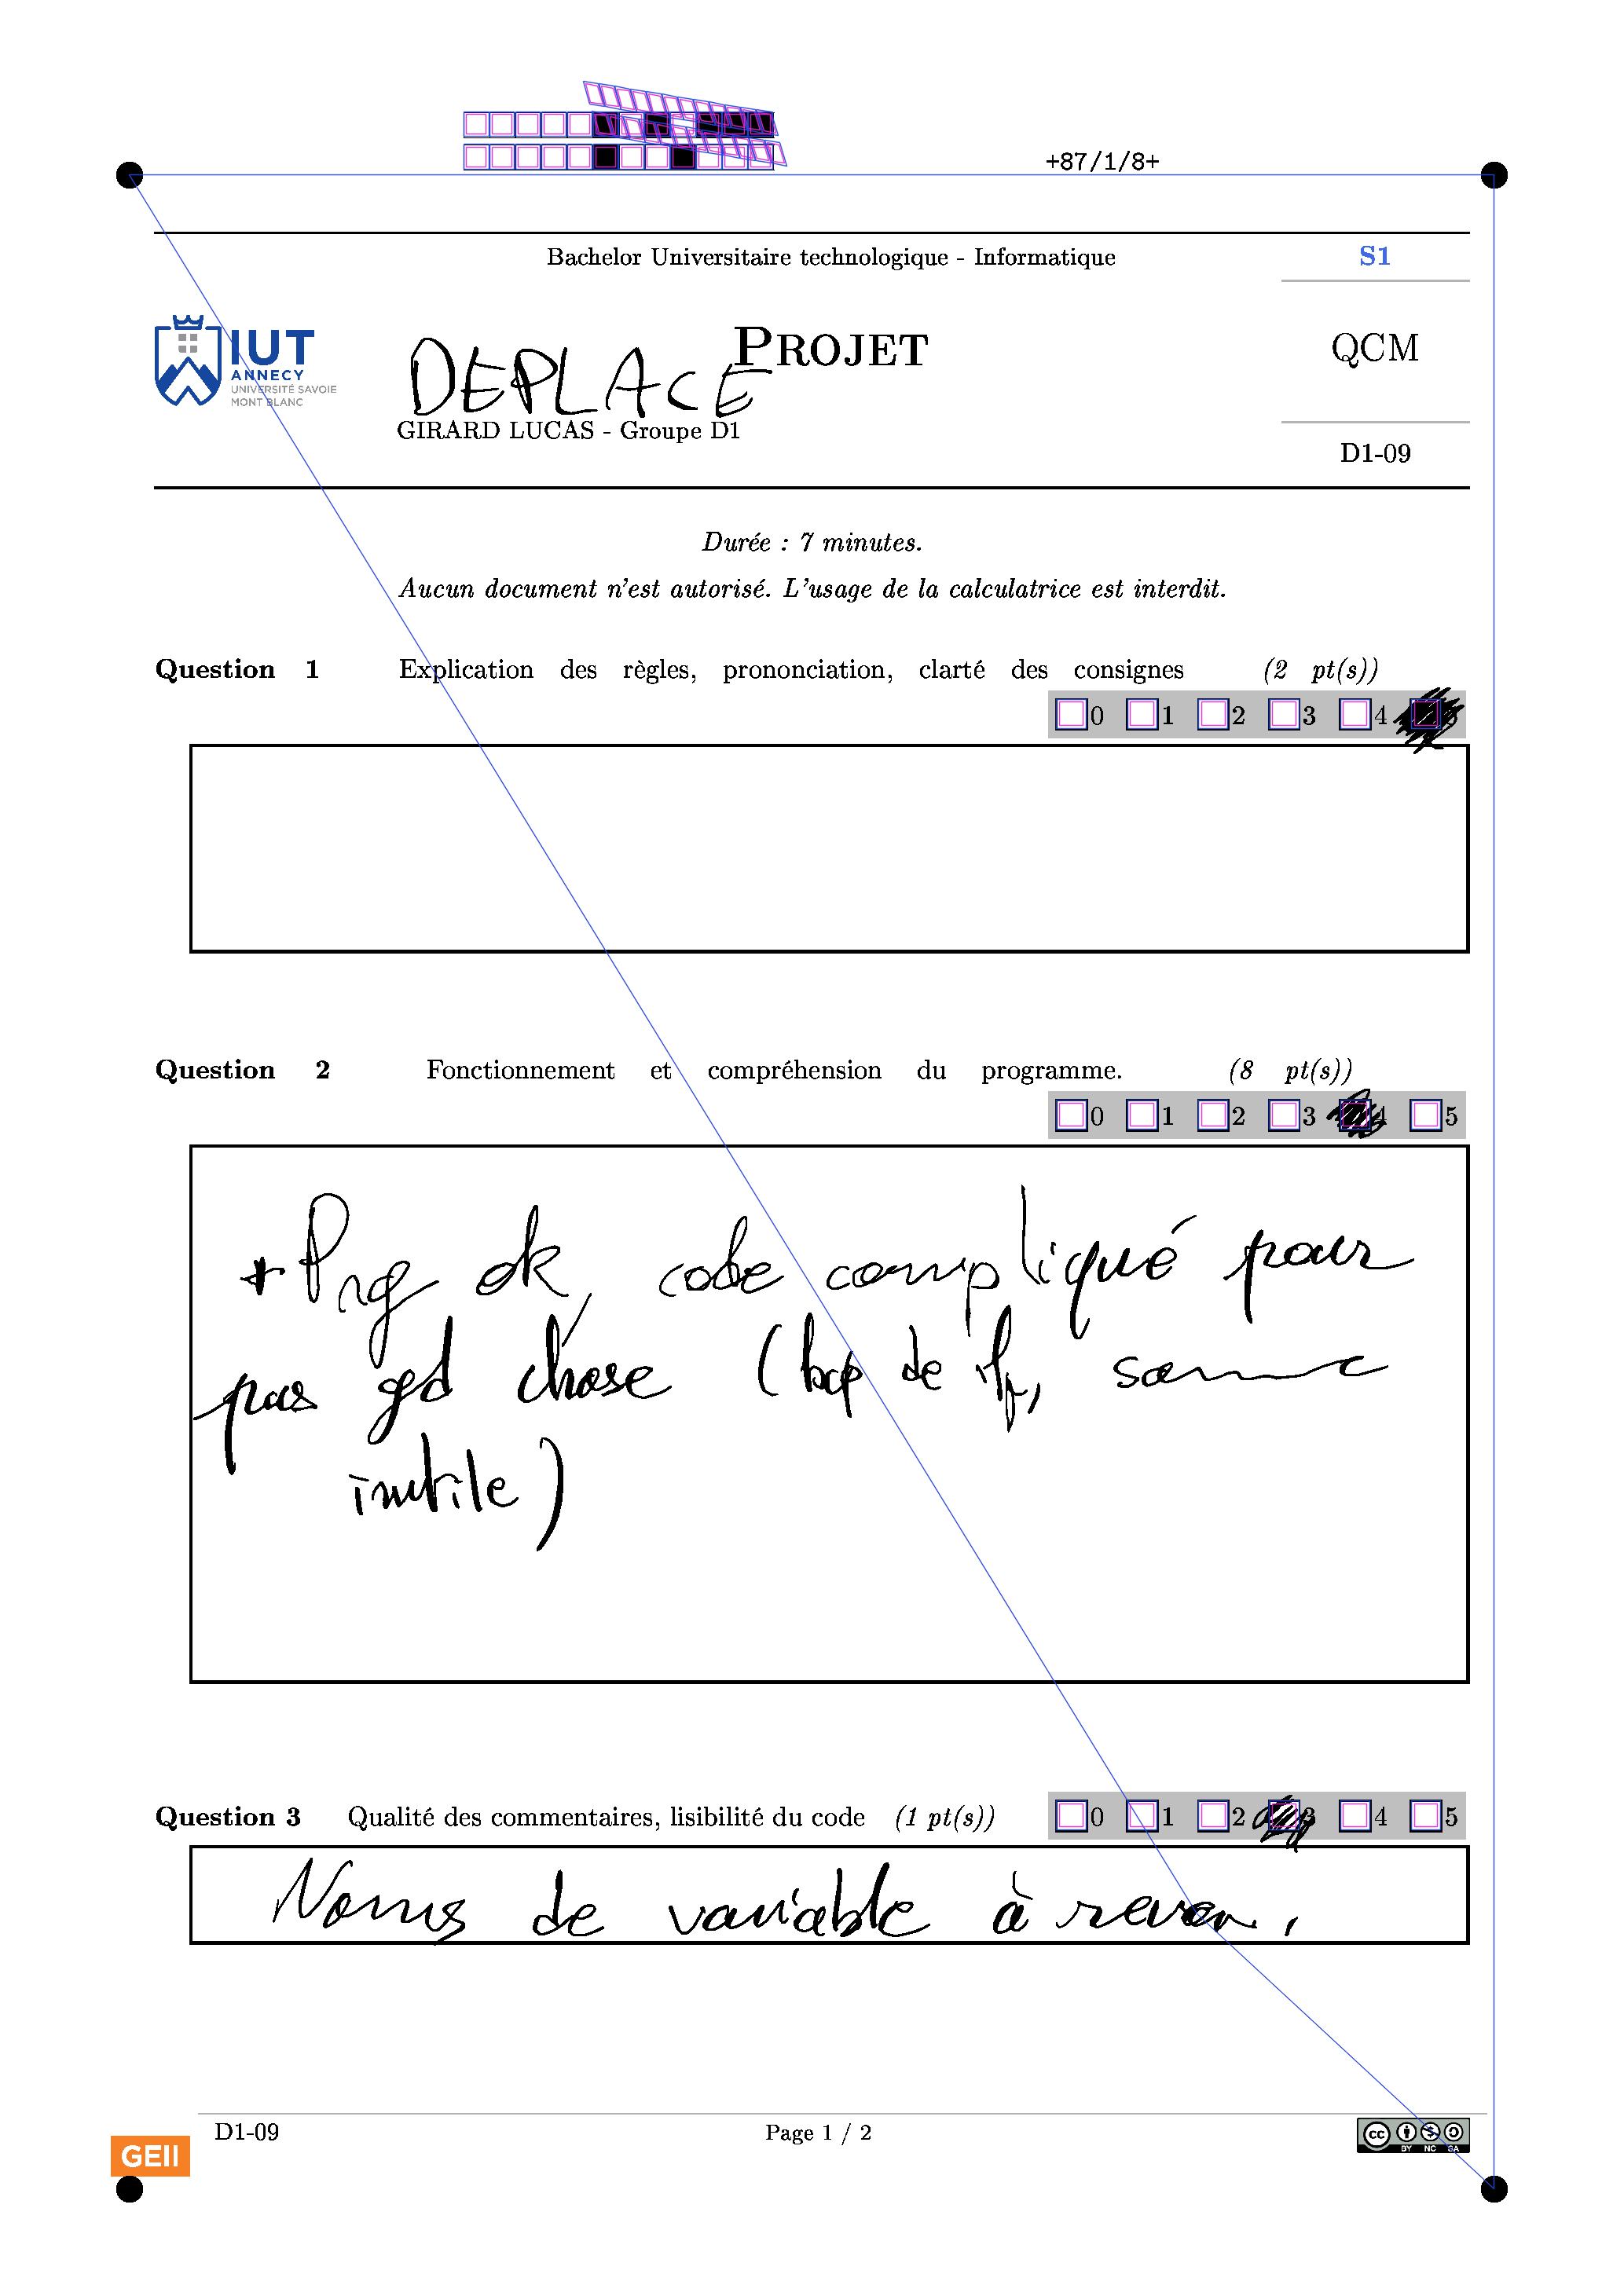 +87/1/8+
Bachelor Universitaire technologique - Informatique
S1
IUT
ANNECY
UNIVERSITÉ SAVOIE
MONT BLANC
PROJET
DEPLACE
QCM
GIRARD LUCAS - Groupe D1
D1-09
Durée : 7 minutes.
Aucun document n'est autorisé. L'usage de la calculatrice est interdit.
Question 1 Explication des règles, prononciation, clarté des consignes (2 pt(s))
0 1 2 3 4
Question 2 Fonctionnement et compréhension du programme. (8 pt(s))
0 1 2 3 4 5
+ Prg ok, code compliqué pour
pas gd chose (bcp de if,
inutile)
Question 3 Qualité des commentaires, lisibilité du code (1 pt(s))
0 1 2 3 4 5
Noms de variable à
D1-09
Page 1 / 2
GEII
cc
BY NC SA